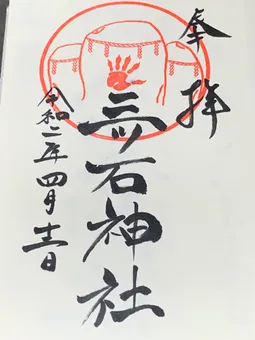 奉拝
三ツ石神社
令和二年四月十二日